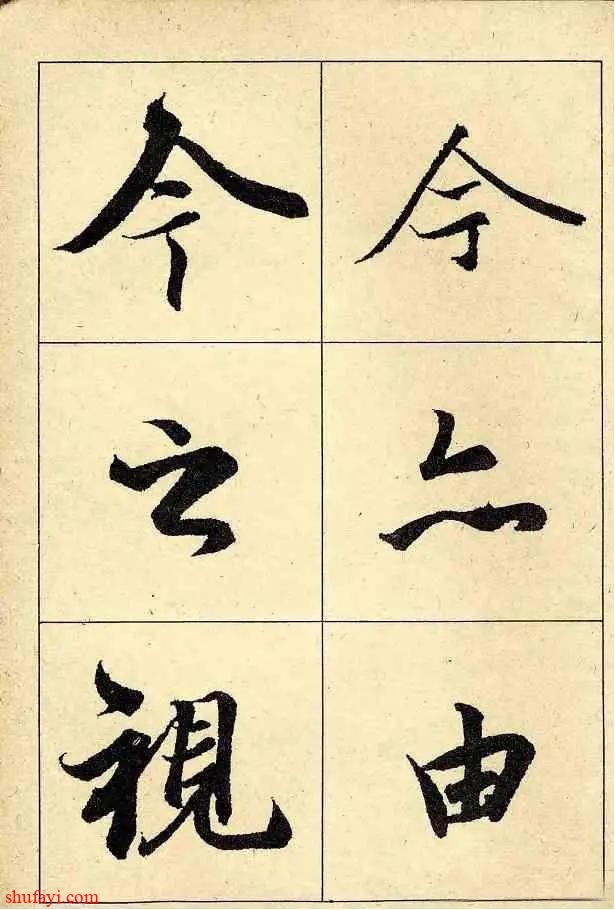 今亦由
今之視
shufayi.com